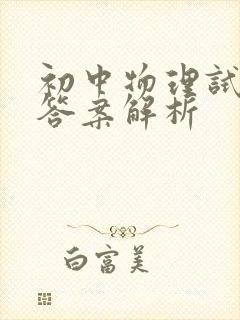 初中物理试
答案解析
白富美